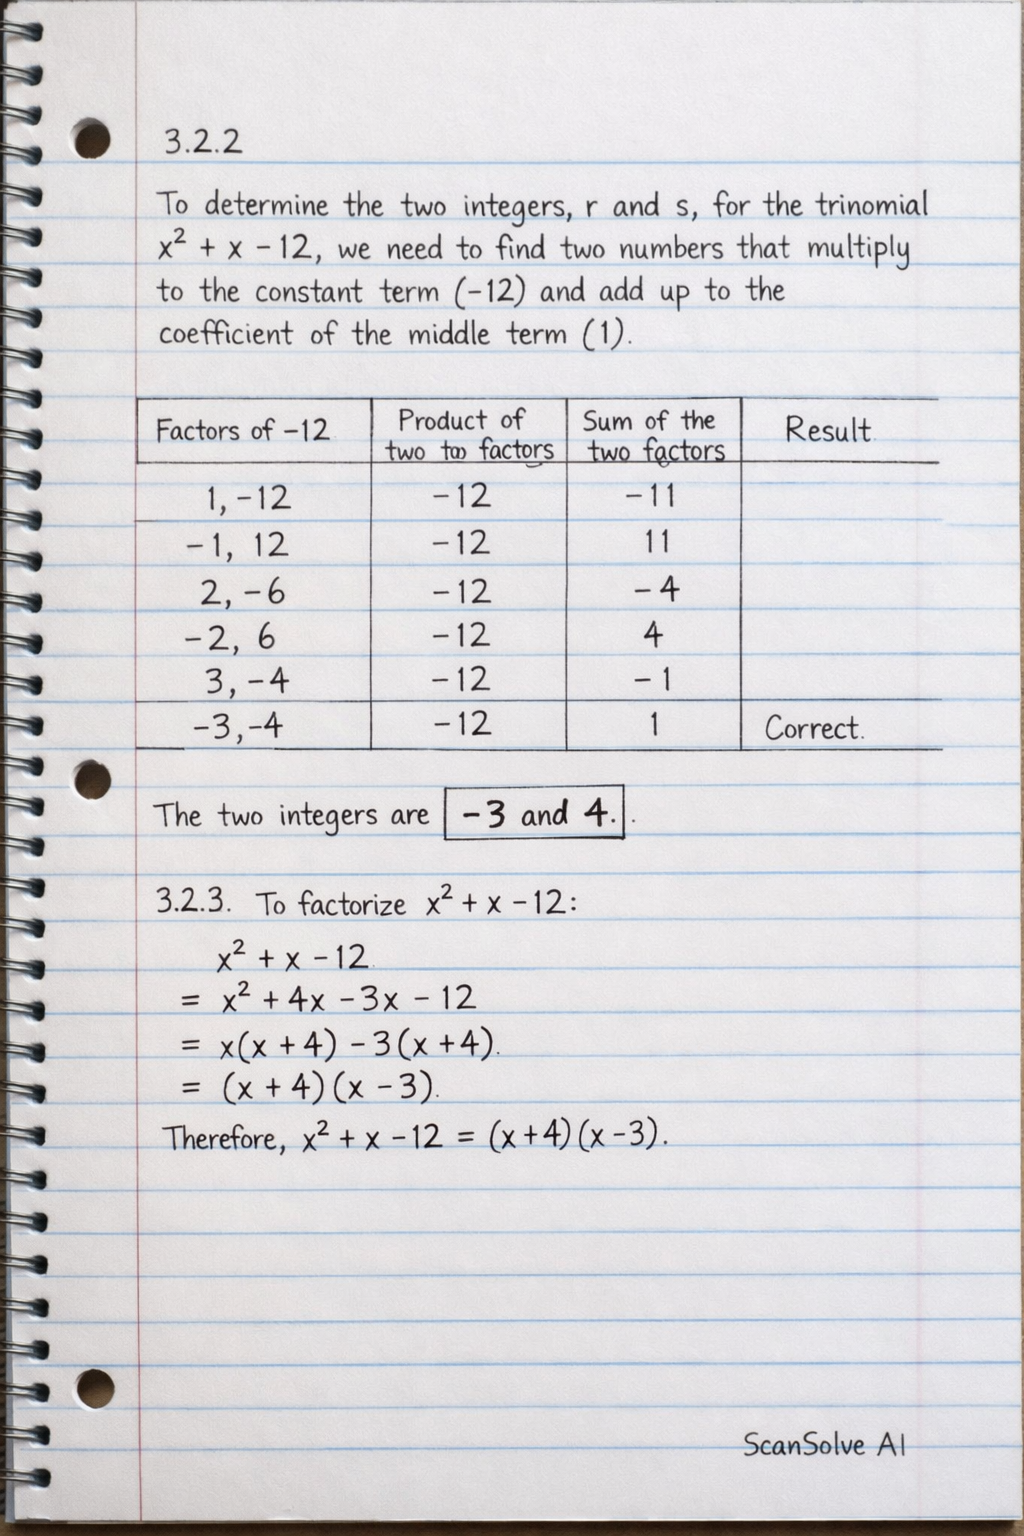 3.2.2
To determine the two integers, r and s, for the trinomial
x² + x - 12, we need to find two numbers that multiply
to the constant term (-12) and add up to the
coefficient of the middle term (1).
Factors of -12 Product of two too factors Sum of the two factors Result
1, -12 -12 -11
-1, 12 -12 11
2, -6 -12 -4
-2, 6 -12 4
3, -4 -12 -1
-3, -4 -12 1 Correct.
The two integers are -3 and 4..
3.2.3. To factorize x² + x - 12:
x² + x - 12.
= x² + 4x - 3x - 12
= x(x + 4) - 3(x + 4).
= (x + 4)(x - 3).
Therefore, x² + x - 12 = (x+4)(x-3).
ScanSolve AI